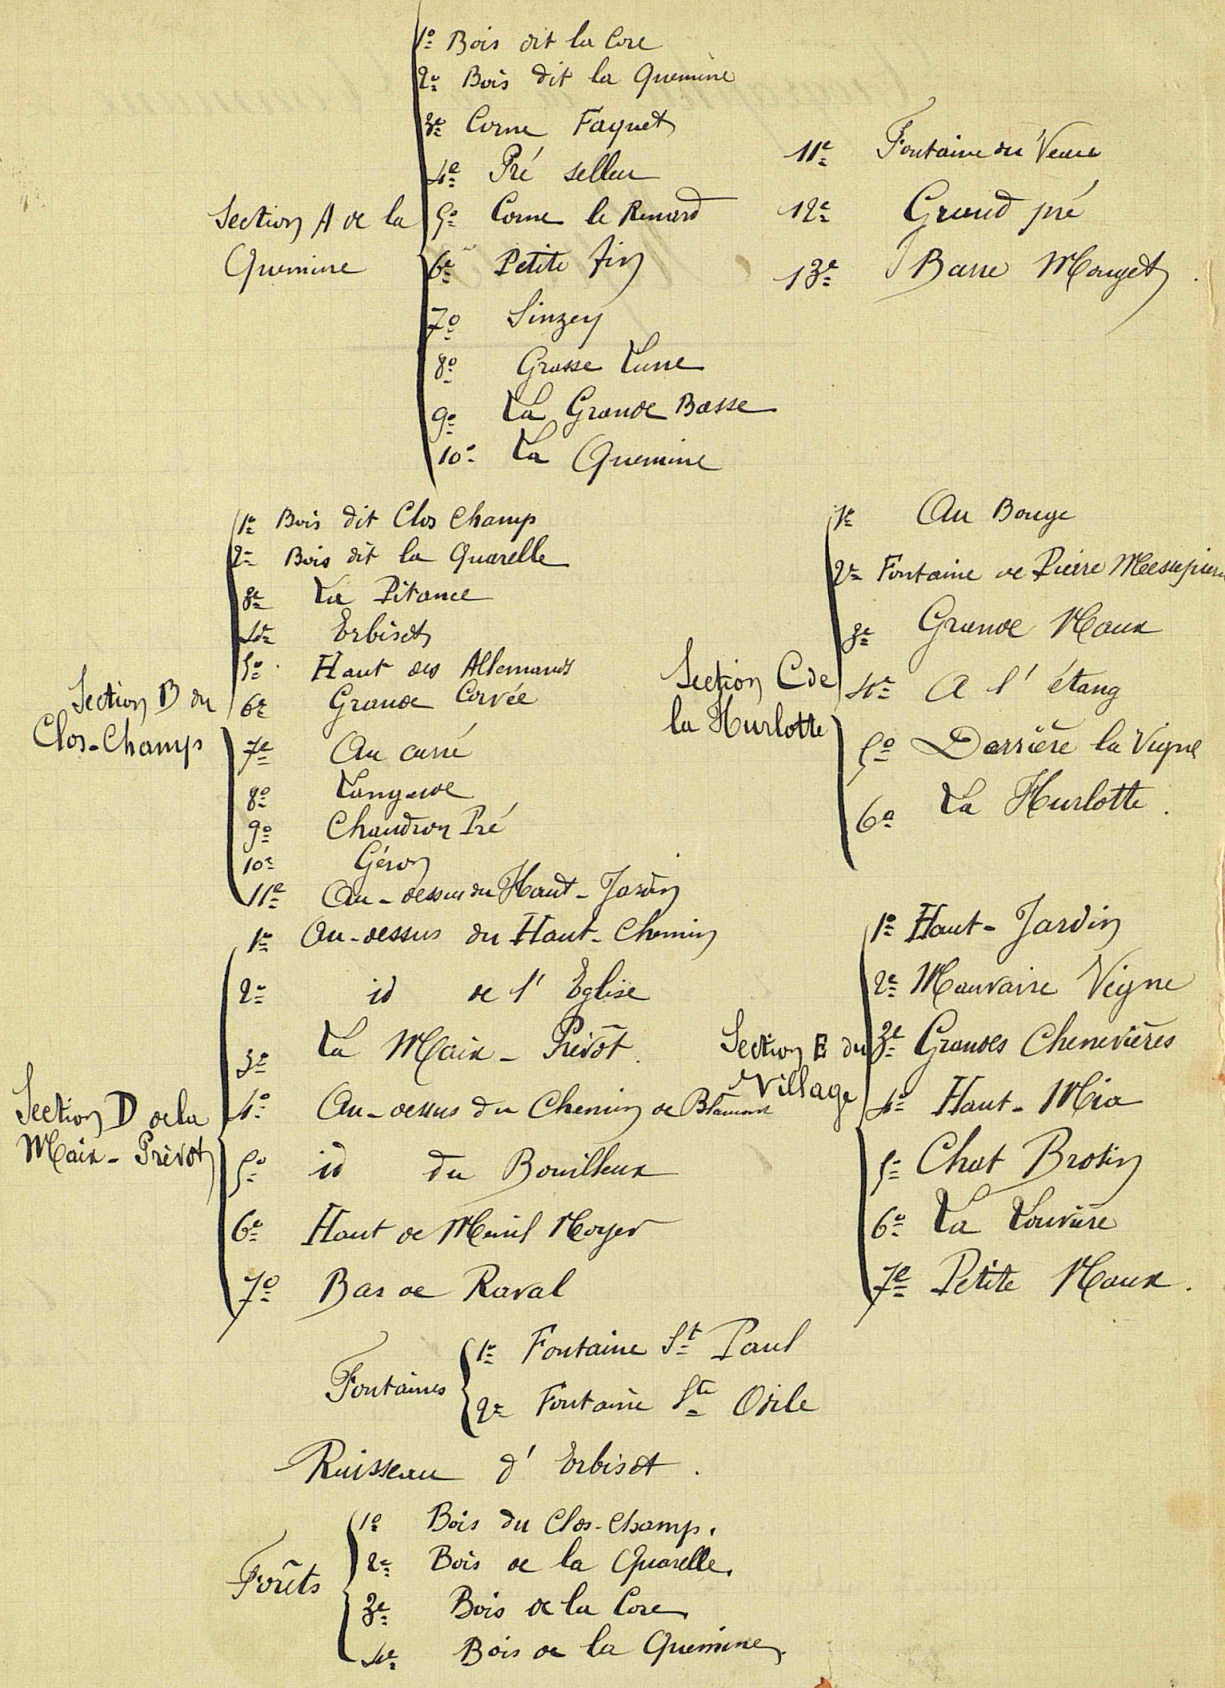 1° Bois dit la Core
2e Bois dit la Quemine
3e Corne Faquet
4e Pré selleu
Section A de la
Quemine
5° Corne le Renard
6e Petite Fin
7° Sinzey
8° Grasse Lune
9° La Grande Basse
10° La Quemine
11e Fontaine du
12e Grand pré
13e Basse Mouget
Section B du
Clos-Champ
1e Bois dit Clos Champ
2e Bois dit la Quarelle
3e La Pitance
4e Erbiset
5° Haut des Allemands
6e Grande Corvée
7e Au carré
8°
9° Chaudron Pré
10e Géron
11e Au-dessus du Haut-Jardin
Section C de
la Hurlotte
1e Au Bouge
2e Fontaine de Pierre
3e Grande Naux
4e A l' étang
5° Derrière la Vigne
6e La Hurlotte.
Section D de la
Maix-Prévôt
1e Au-dessus du Haut-Chemin
2e id de l' Eglise
3e La Maix-Prévôt.
4° Au-dessus du Chemin de Blamont
5° id du Bouilleux
6e Haut de Ménil Noyer
7° Bas de Raval
Section E du
Village
1e Haut-Jardin
2e Mauvaise Vigne
3e Grandes Chenevières
4e Haut-Mia
5e Chat Brotin
6e La Louvière
7e Petite Naux.
Fontaines
1e Fontaine St Paul
2e Fontaine Ste Odile
Ruisseau d' Erbiset.
Forêts
1° Bois du Clos-Champ.
2e Bois de la Quarelle.
3e Bois de la Core
4e Bois de la Quemine.